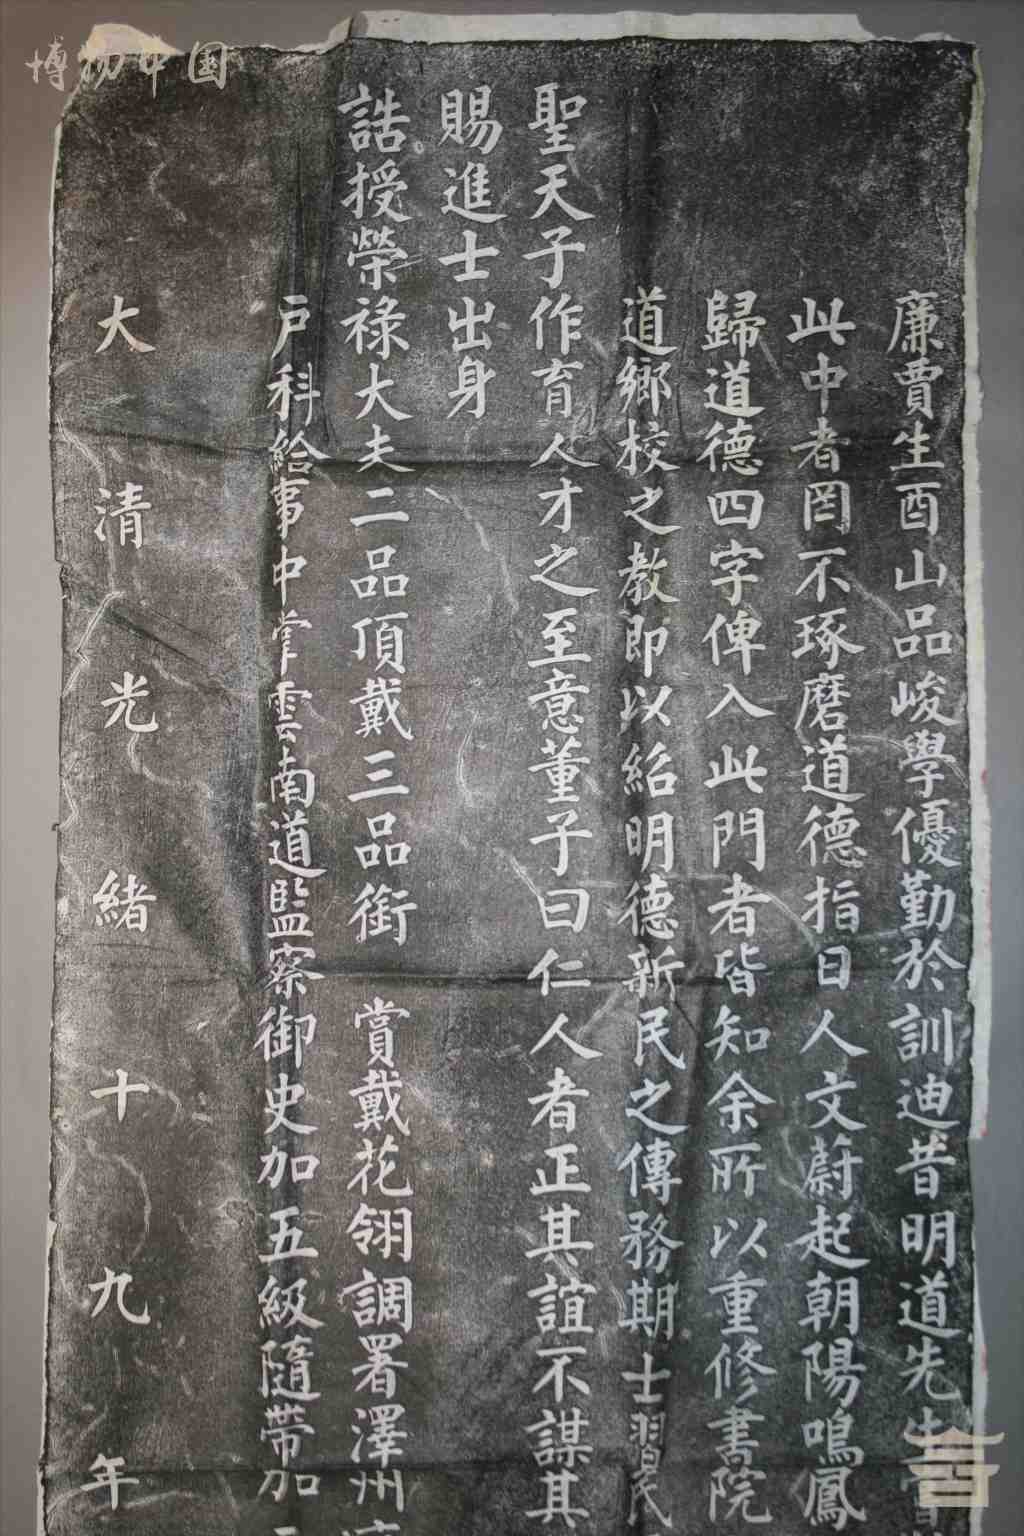 博物中国
廉賈生酉山品峻學優勤於訓迪昔明道先生嘗
此中者罔不琢磨道德指日人文蔚起朝陽鳴鳳
歸道德四字俾入此門者皆知余所以重修書院
道鄉校之教即以紹明德新民之傳務期士習民
聖天子作育人才之至意董子曰仁人者正其誼不謀其
賜進士出身
誥授榮祿大夫二品頂戴三品銜 賞戴花翎調署澤州
戶科給事中掌雲南道監察御史加五級隨帶加
大清光緒十九年